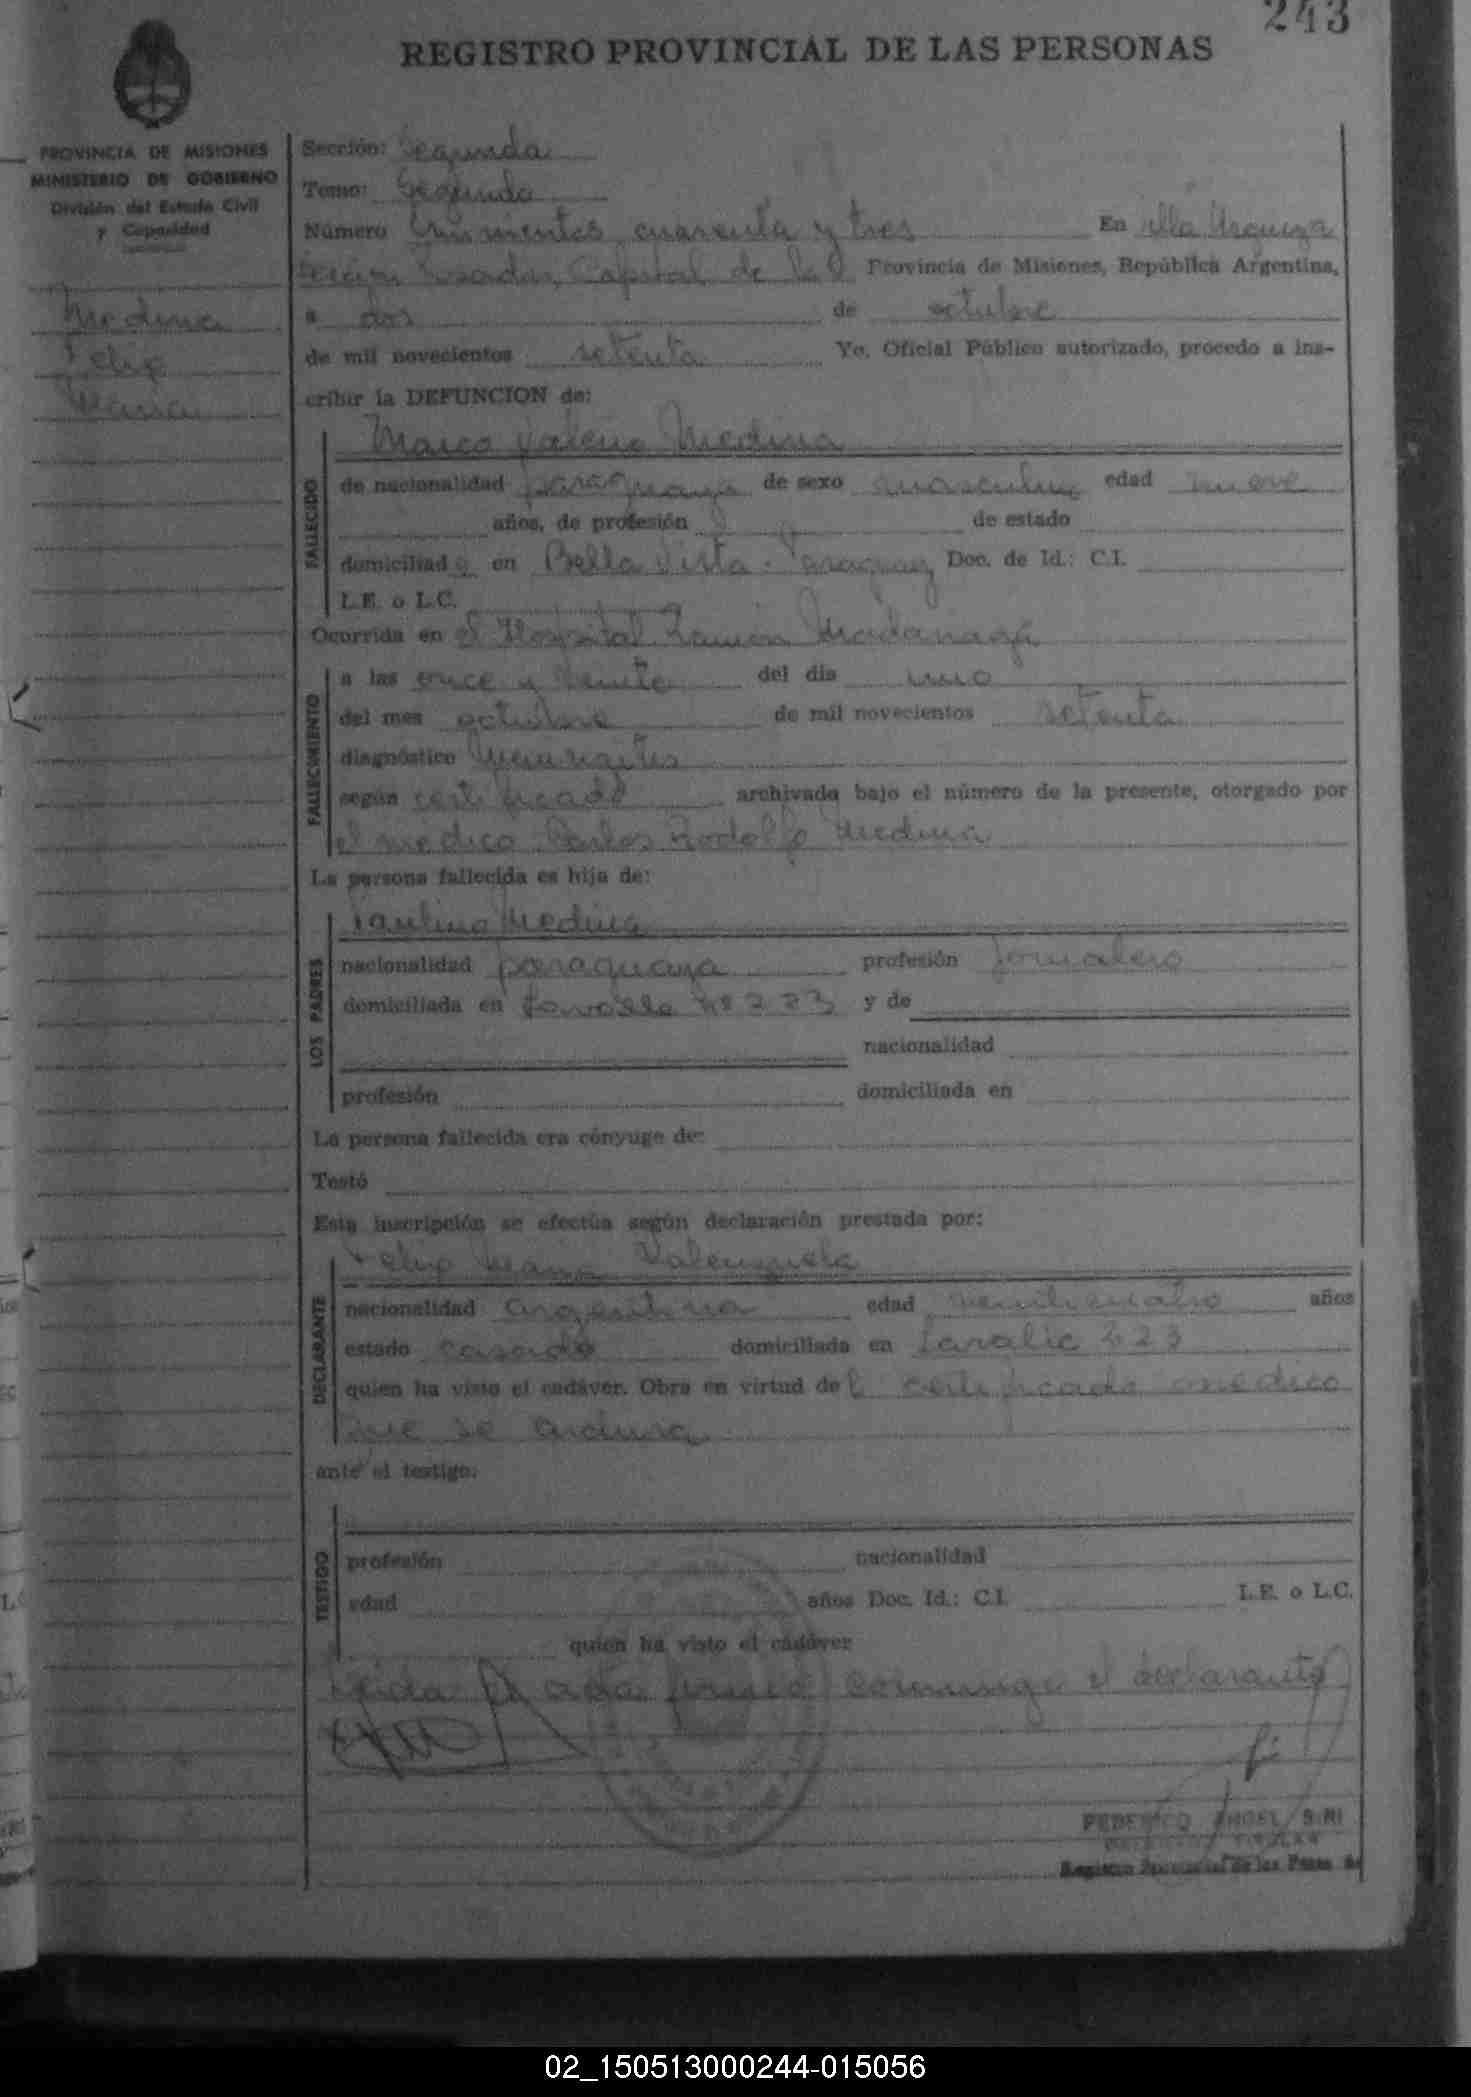 243
REGISTRO PROVINCIAL DE LAS PERSONAS
PROVINCIA DE MISIONES
MINISTERIO DE GOBIERNO
División del Estado Civil
y Capacidad
Medina
Felip
Maria
Sección: Segunda
Tomo: Segundo
Número cuarenta y tres En Villa Urquiza
Posadas, Capital de la Provincia de Misiones, República Argentina,
a dos de octubre
de mil novecientos setenta Yo, Oficial Público autorizado, procedo a ins-
cribir la DEFUNCION de:
Marco Valerio Medina
FALLECIDO
de nacionalidad paraguaya de sexo masculino edad nueve
años, de profesión de estado
domiciliado en Bella Vista - Paraguay Doc. de Id.: C.I.
L.E. o L.C.
Ocurrida en el Hospital Ramón Madariaga
FALLECIMIENTO
a las once y veinte del día uno
del mes octubre de mil novecientos setenta
diagnóstico
según certificado archivado bajo el número de la presente, otorgado por
el medico Carlos Rodolfo Medina
La persona fallecida es hija de:
LOS PADRES
Paulino Medina
nacionalidad paraguaya profesión Jornalero
domiciliada en Lavalle Nº 223 y de
nacionalidad
profesión domiciliada en
La persona fallecida era cónyuge de:
Testó
Esta inscripción se efectúa según declaración prestada por:
DECLARANTE
Felip Maria Valenzuela
nacionalidad argentina edad veinticuatro años
estado casado domiciliada en Lavalle 223
quien ha visto el cadáver. Obra en virtud del certificado medico
que se archiva
ante el testigo.
TESTIGO
profesión nacionalidad
edad años Doc. Id.: C.I. L.E. o L.C.
quien ha visto el cadáver
Leida el acta firmó conmigo el declarante
FEDERICO ANGEL SIRI
TITULAR
Registro Provincial de las Pers
02_150513000244-015056